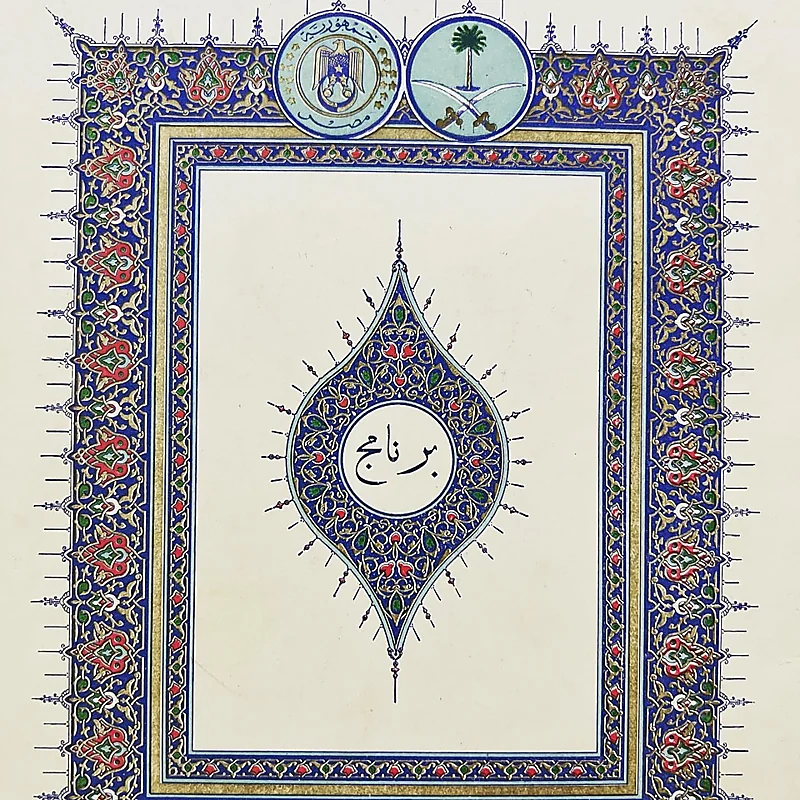 جمهورية
مصر
برنامج